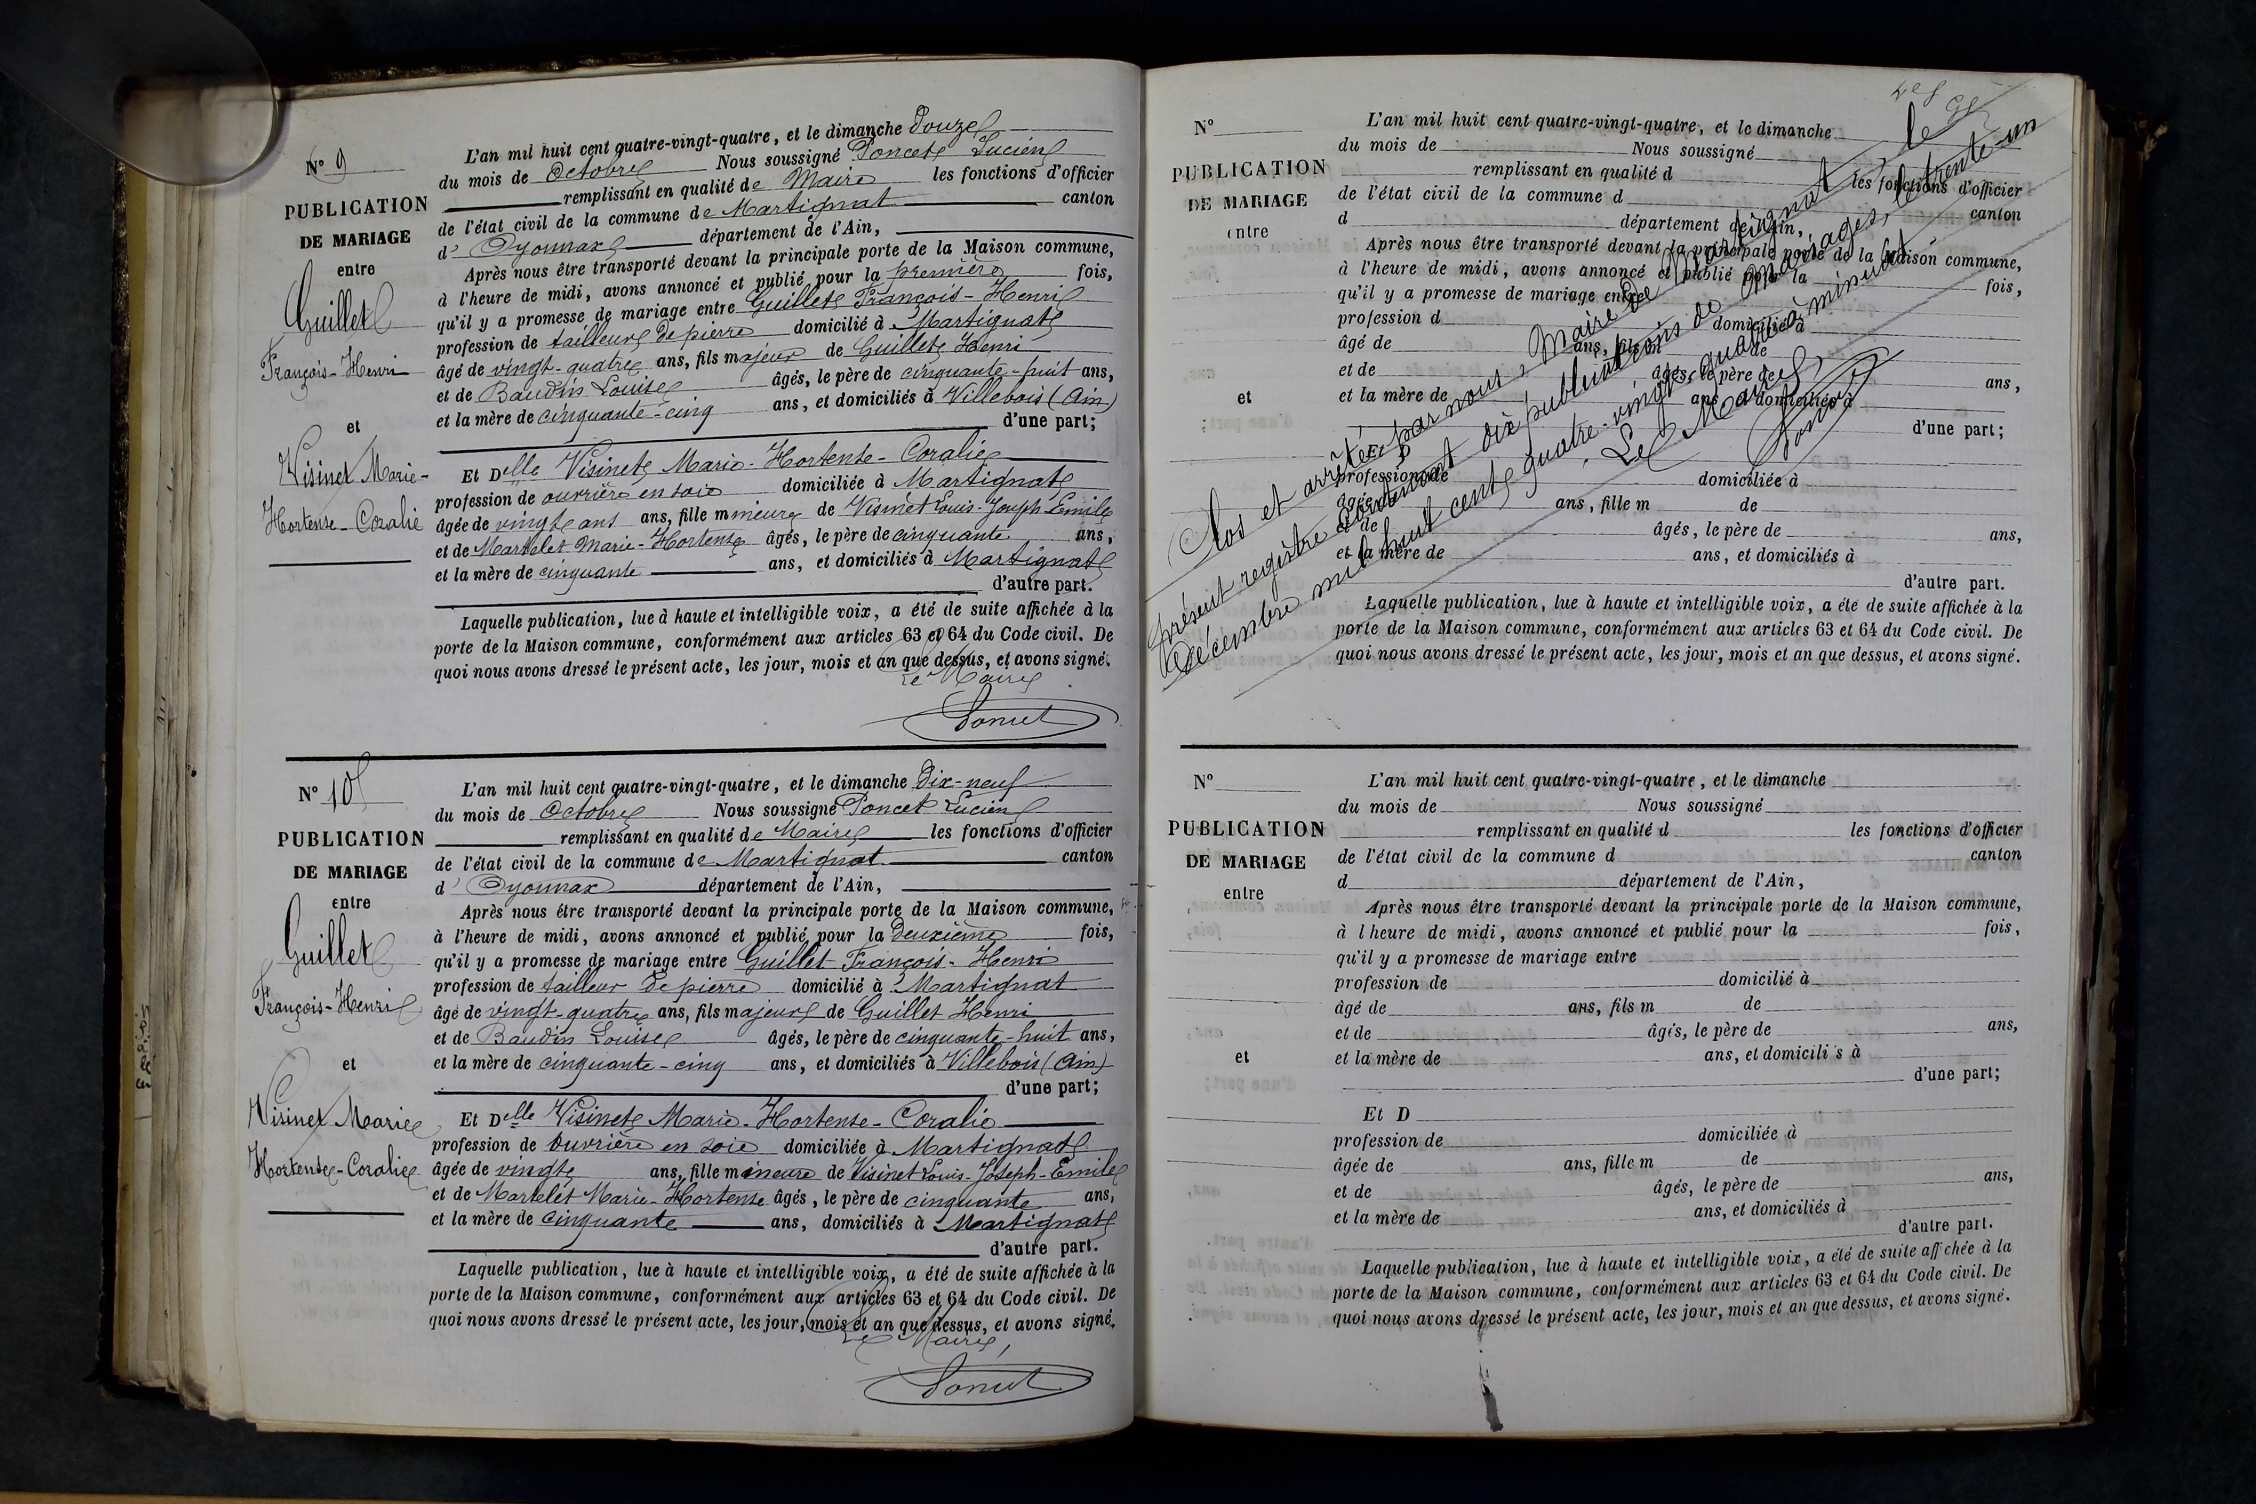 N° 9
PUBLICATION
DE MARIAGE
entre
Guillet
François-Henri
et
Visinet Marie-
Hortense-Coralie
L'an mil huit cent quatre-vingt-quatre, et le dimanche Douze
du mois de Octobre Nous soussigné Poncet Lucien
remplissant en qualité de Maire les fonctions d'officier
de l'état civil de la commune de Martignat canton
d' Oyonnax département de l'Ain,
Après nous être transporté devant la principale porte de la Maison commune,
à l'heure de midi, avons annoncé et publié pour la première fois,
qu'il y a promesse de mariage entre Guillet François-Henri
profession de tailleur de pierre domicilié à Martignat
âgé de vingt-quatre ans, fils majeur de Guillet Henri
et de Baudin Louise âgés, le père de cinquante-huit ans,
et la mère de cinquante-cinq ans, et domiciliés à Villebois (Ain)
d'une part;
Et Delle Visinet Marie-Hortense-Coralie
profession de ouvrière en soie domiciliée à Martignat
âgée de vingt ans ans, fille mineure de Visinet Louis-Joseph Emile
et de Martelet Marie-Hortense âgés, le père de cinquante ans,
et la mère de cinquante ans, et domiciliés à Martignat
d'autre part.
Laquelle publication, lue à haute et intelligible voix, a été de suite affichée à la
porte de la Maison commune, conformément aux articles 63 et 64 du Code civil. De
quoi nous avons dressé le présent acte, les jour, mois et an que dessus, et avons signé.
Le Maire
Poncet
N° 10
PUBLICATION
DE MARIAGE
entre
Guillet
François-Henri
et
Visinet Marie
Hortense-Coralie
L'an mil huit cent quatre-vingt-quatre, et le dimanche Dix-neuf
du mois de Octobre Nous soussigné Poncet Lucien
remplissant en qualité de Maire les fonctions d'officier
de l'état civil de la commune de Martignat canton
d' Oyonnax département de l'Ain,
Après nous être transporté devant la principale porte de la Maison commune,
à l'heure de midi, avons annoncé et publié pour la Deuxième fois,
qu'il y a promesse de mariage entre Guillet François-Henri
profession de tailleur de pierre domicilié à Martignat
âgé de vingt-quatre ans, fils majeur de Guillet Henri
et de Baudin Louise âgés, le père de cinquante-huit ans,
et la mère de cinquante-cinq ans, et domiciliés à Villebois (Ain)
d'une part;
Et Delle Visinet Marie-Hortense-Coralie
profession de Ouvrière en soie domiciliée à Martignat
âgée de vingt ans, fille mineure de Visinet Louis-Joseph-Emile
et de Martelet Marie-Hortense âgés, le père de cinquante ans,
et la mère de cinquante ans, domiciliés à Martignat
d'autre part.
Laquelle publication, lue à haute et intelligible voix, a été de suite affichée à la
porte de la Maison commune, conformément aux articles 63 et 64 du Code civil. De
quoi nous avons dressé le présent acte, les jour, mois et an que dessus, et avons signé.
Le Maire,
Poncet
N°
PUBLICATION
DE MARIAGE
entre
et
L'an mil huit cent quatre-vingt-quatre, et le dimanche
du mois de Nous soussigné
remplissant en qualité d les fonctions d'officier
de l'état civil de la commune d canton
d département de l'Ain,
Après nous être transporté devant la principale porte de la Maison commune,
à l'heure de midi, avons annoncé et publié pour la fois,
qu'il y a promesse de mariage entre
profession d domicilié à
âgé de ans, fils m de
et de âgés, le père de ans,
et la mère de ans, et domiciliés à
d'une part;
Et D
profession de domiciliée à
âgée de ans, fille m de
et de âgés, le père de ans,
et la mère de ans, et domiciliés à
d'autre part.
Laquelle publication, lue à haute et intelligible voix, a été de suite affichée à la
porte de la Maison commune, conformément aux articles 63 et 64 du Code civil. De
quoi nous avons dressé le présent acte, les jour, mois et an que dessus, et avons signé.
Clos et arrêté par nous, Maire de Martignat, le
présent registre contenant dix publications de Mariages, le trente-un
Décembre mil huit cent quatre-vingt-quatre à minuit
Le Maire,
Poncet
N°
PUBLICATION
DE MARIAGE
entre
et
L'an mil huit cent quatre-vingt-quatre, et le dimanche
du mois de Nous soussigné
remplissant en qualité d les fonctions d'officier
de l'état civil de la commune d canton
d département de l'Ain,
Après nous être transporté devant la principale porte de la Maison commune,
à l heure de midi, avons annoncé et publié pour la fois,
qu'il y a promesse de mariage entre
profession de domicilié à
âgé de ans, fils m de
et de âgés, le père de ans,
et la mère de ans, et domicili s à
d'une part;
Et D
profession de domiciliée à
âgée de ans, fille m de
et de âgés, le père de ans,
et la mère de ans, et domiciliés à
d'autre part.
Laquelle publication, lue à haute et intelligible voix, a été de suite aff chée à la
porte de la Maison commune, conformément aux articles 63 et 64 du Code civil. De
quoi nous avons dressé le présent acte, les jour, mois et an que dessus, et avons signé.